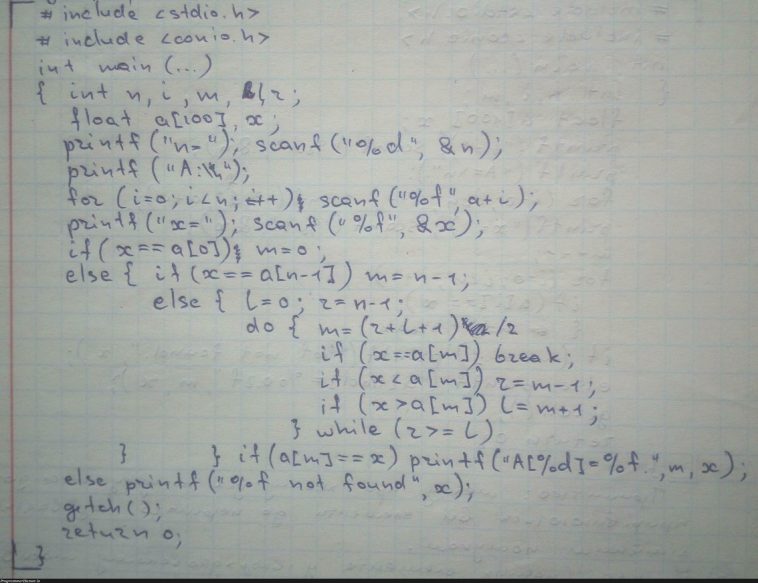 # include <stdio.h>
# include <conio.h>
int main (...)
{ int n, i, m, l, r;
float a[100], x;
printf ("n= "); scanf ("%d", &n);
printf ("A:\n");
for (i=0; i<n; i++) scanf ("%f", a+i);
printf ("x="); scanf ("%f", &x);
if (x==a[0]) m=0;
else { if (x==a[n-1]) m=n-1;
else { l=0; r=n-1;
do { m=(r+l+1)/2
if (x==a[m]) break;
if (x<a[m]) r=m-1;
if (x>a[m]) l=m+1;
} while (r>=l)
} } if (a[m]==x) printf ("A[%d]=%f.", m, x);
else printf ("%f not found", x);
getch();
return 0;
}